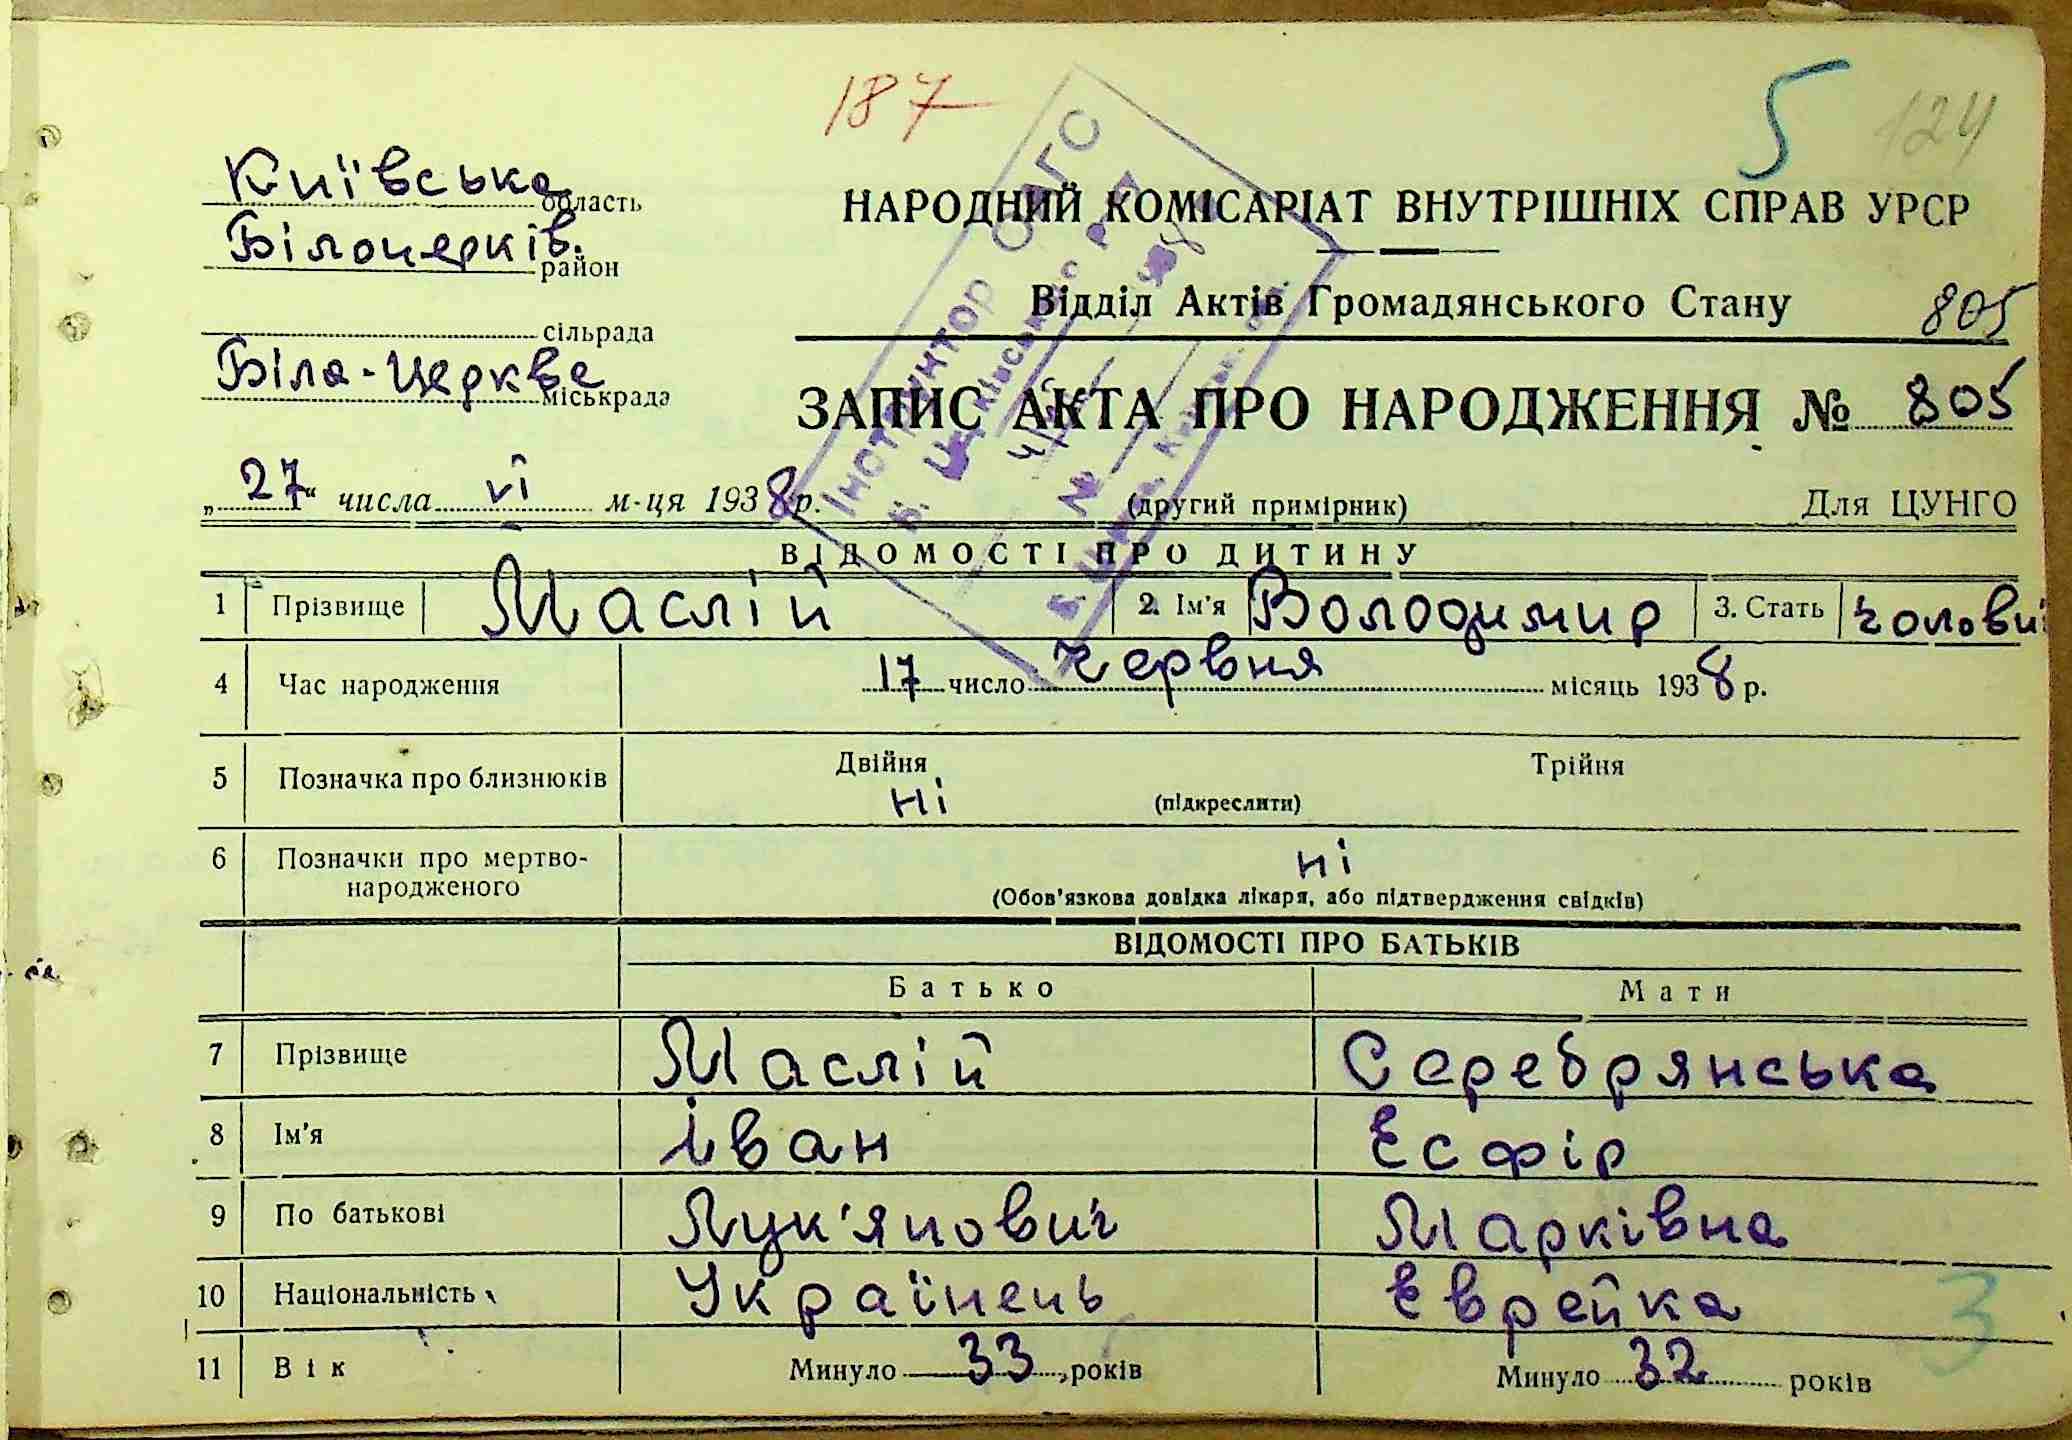 187
5
124
Київська область
Білоцерків. район
сільрада
Біла-Церква міськрада
НАРОДНИЙ КОМІСАРІАТ ВНУТРІШНІХ СПРАВ УРСР
Відділ Актів Громадянського Стану
805
ЗАПИС АКТА ПРО НАРОДЖЕННЯ № 805
„27“ числа VI м-ця 1938 р.
(другий примірник)
Для ЦУНГО
Інструктор ОАГС
ВІДОМОСТІ ПРО ДИТИНУ
1 Прізвище Маслій 2. Ім'я Володимир 3. Стать
4 Час народження 17 число червня місяць 1938 р.
5 Позначка про близнюків Двійня Трійня
ні
(підкреслити)
6 Позначки про мертво-
народженого
ні
(Обов'язкова довідка лікаря, або підтвердження свідків)
ВІДОМОСТІ ПРО БАТЬКІВ
Батько Мати
7 Прізвище Маслій Серебрянська
8 Ім'я Іван Есфір
9 По батькові Лук'янович Марківна
10 Національність Українець Еврейка
3
11 Вік Минуло 33 років Минуло 32 років